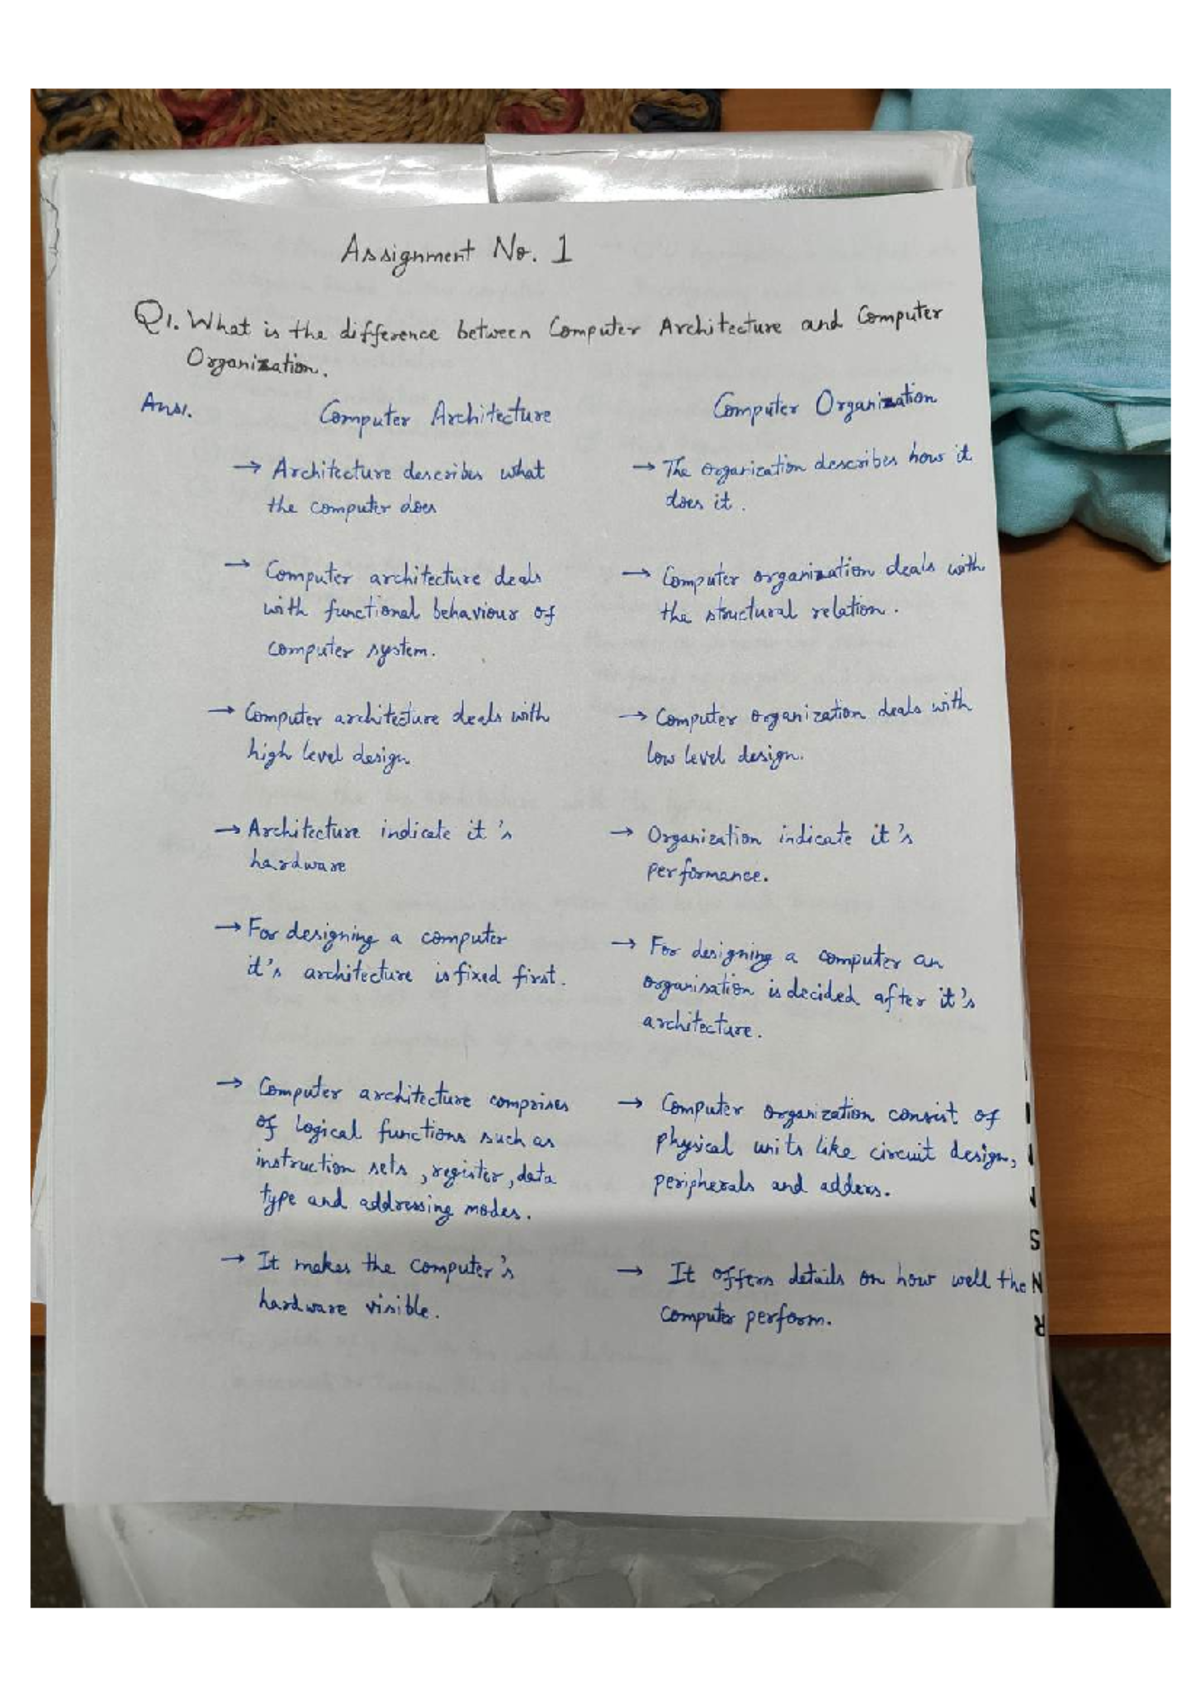 Assignment No. 1
Q1. What is the difference between Computer Architecture and Computer
Organization.
Ans1.
Computer Architecture
→ Architecture describes what
the computer does
→ Computer architecture deals
with functional behaviour of
computer system.
→ Computer architecture deals with
high level design.
→ Architecture indicate it's
hardware
→ For designing a computer
it's architecture is fixed first.
→ Computer architecture comprises
of logical functions such as
instruction sets, register, data
type and addressing modes.
→ It makes the computer's
hardware visible.
Computer Organization
→ The organization describes how it
does it.
→ Computer organization deals with
the structural relation.
→ Computer organization deals with
low level design.
→ Organization indicate it's
performance.
→ For designing a computer an
organisation is decided after it's
architecture.
→ Computer organization consist of
physical units like circuit design,
peripherals and adders.
→ It offers details on how well the
computer perform.